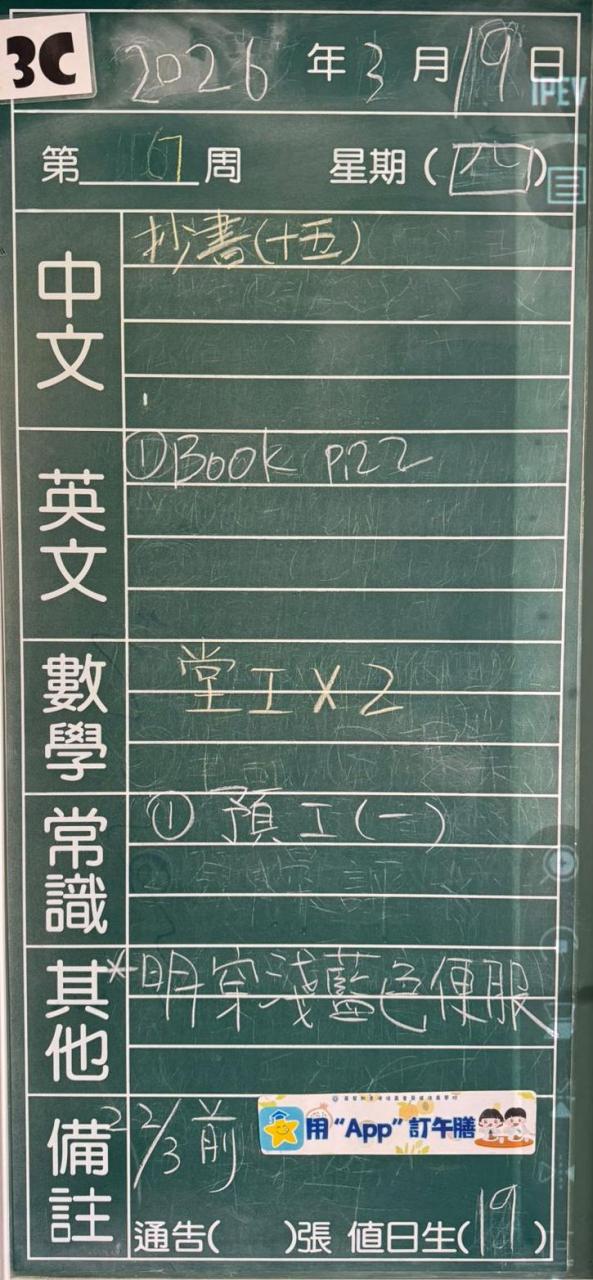 3C
2026 年 3 月 19 日
IPEV
第 周 星期(四)
中文
抄書(十五)
英文
①Book P.22
數學
堂工 X 2
常識
① 預工(一)
其他
*明穿淺藍色便服
備註
22/3 前
用“App”訂午膳
通告( )張 值日生(19)